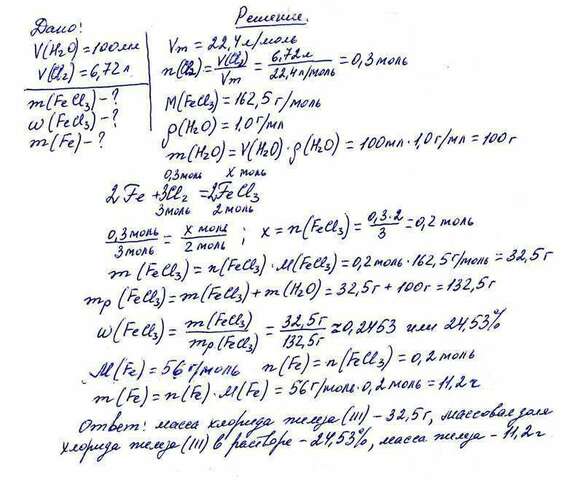 Решение.
Дано:
V(H₂O) = 100 мл
V(Cl₂) = 6,72 л
m(FeCl₃) - ?
ω(FeCl₃) - ?
m(Fe) - ?
Vm = 22,4 л/моль
n(Cl₂) = V(Cl₂)/Vm = 6,72 л/22,4 л/моль = 0,3 моль
M(FeCl₃) = 162,5 г/моль
ρ(H₂O) = 1,0 г/мл
m(H₂O) = V(H₂O) · ρ(H₂O) = 100 мл · 1,0 г/мл = 100 г
0,3 моль x моль
2Fe + 3Cl₂ = 2FeCl₃
3 моль 2 моль
0,3 моль/3 моль = x моль/2 моль ; x = n(FeCl₃) = 0,3·2/3 = 0,2 моль
m(FeCl₃) = n(FeCl₃) · M(FeCl₃) = 0,2 моль · 162,5 г/моль = 32,5 г
mр(FeCl₃) = m(FeCl₃) + m(H₂O) = 32,5 г + 100 г = 132,5 г
ω(FeCl₃) = m(FeCl₃)/mр(FeCl₃) = 32,5 г/132,5 г ≈ 0,2453 или 24,53%
M(Fe) = 56 г/моль n(Fe) = n(FeCl₃) = 0,2 моль
m(Fe) = n(Fe) · M(Fe) = 56 г/моль · 0,2 моль = 11,2 г
Ответ: масса хлорида железа (III) - 32,5 г, массовая доля
хлорида железа (III) в растворе - 24,53%, масса железа - 11,2 г